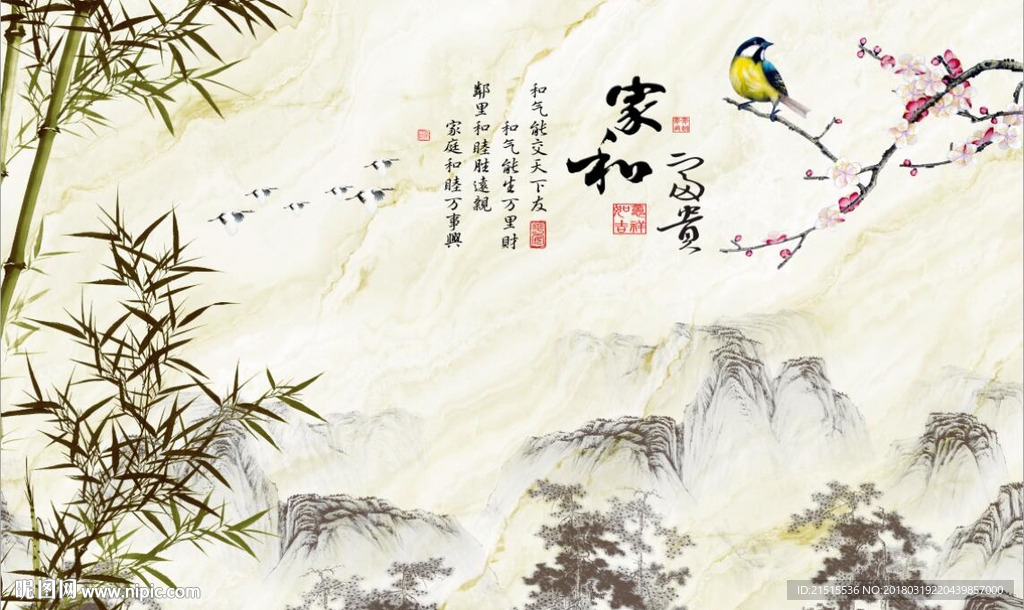 家和
富贵
和气能交天下友
和气能生万里财
邻里和睦胜远亲
家庭和睦万事興
昵图网 www.nipic.com
ID:21515536 NO:20180319220439857000